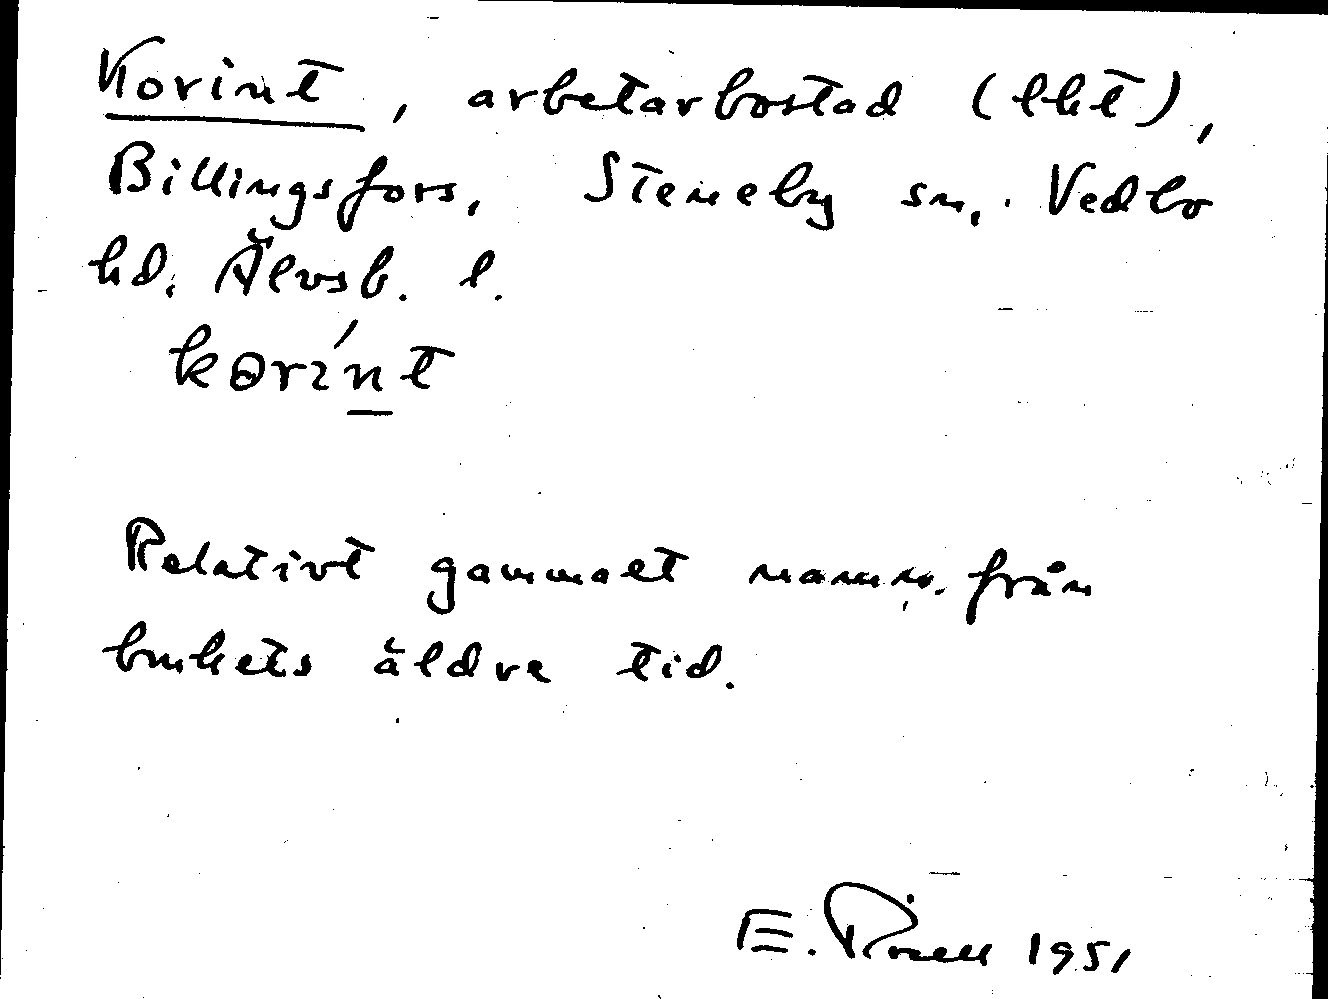 Korint, arbetarbostad (lht),
Billingsfors, Steneby sn, Vedbo
hd. Älvsb. l.
kɵrín̲t
Relativt gammalt namn. från
brukets äldre tid.
E. Rosell 1951